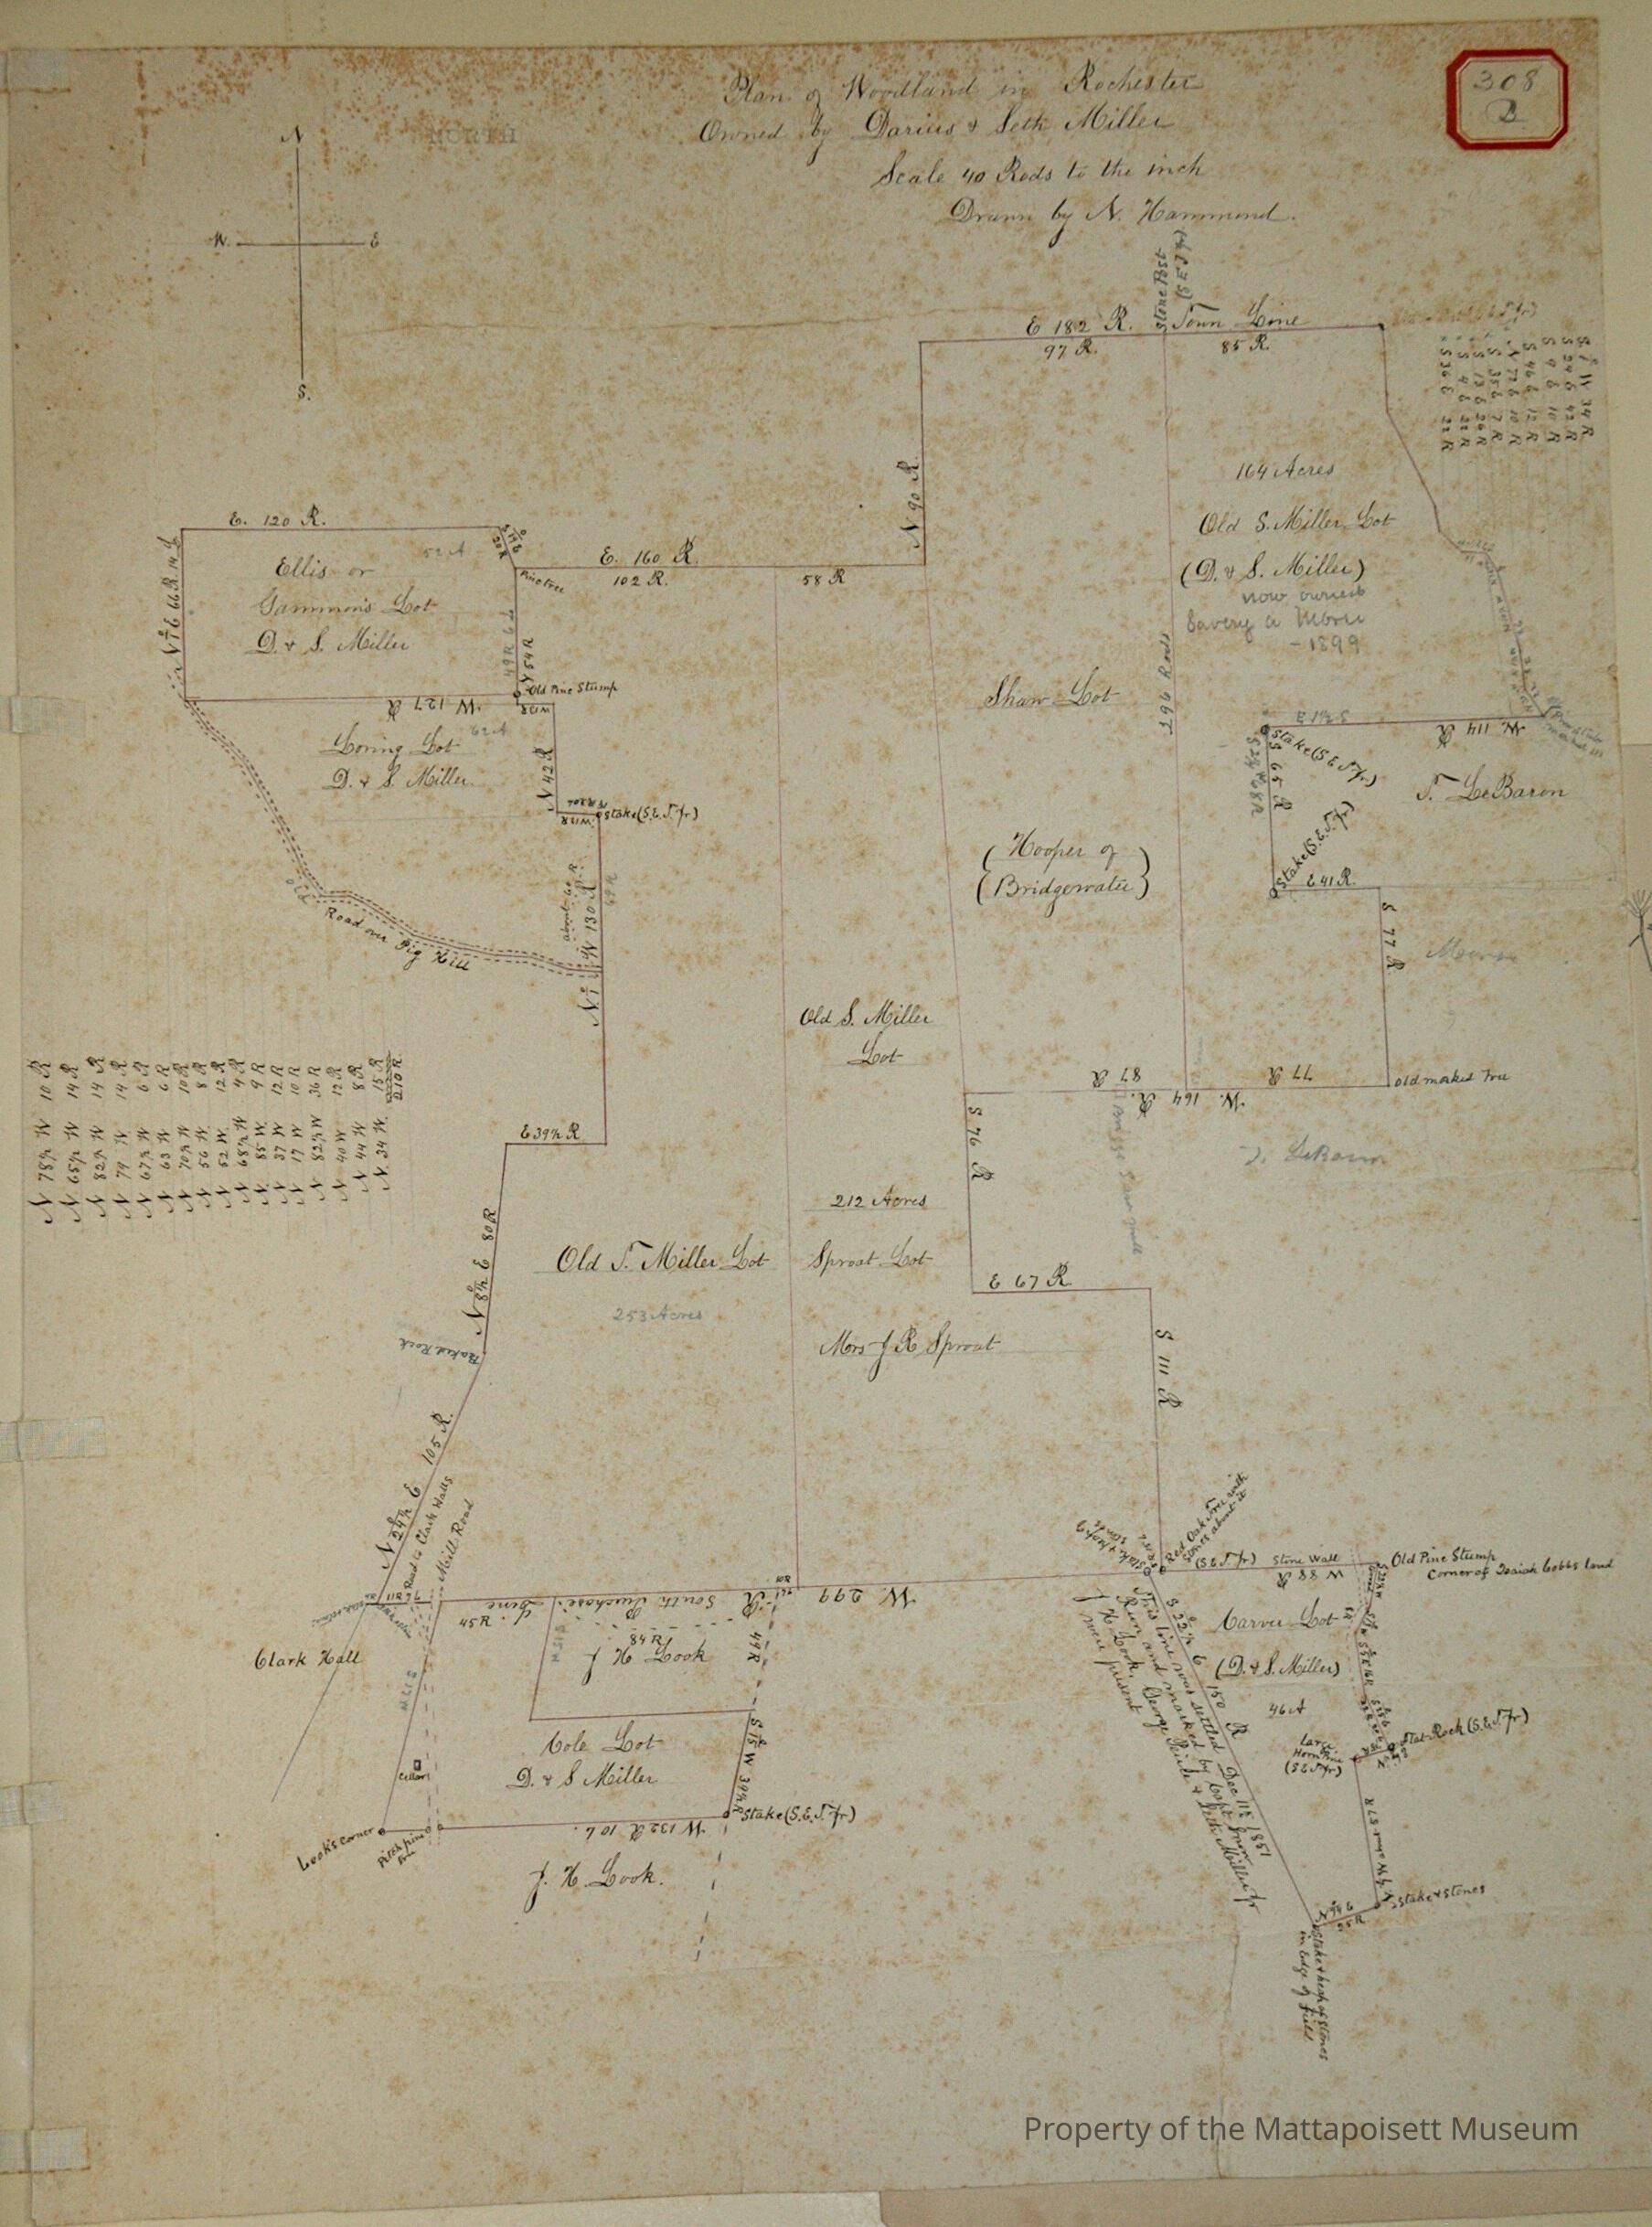 308
2
Plan of Woodland in Rochester
Owned by Darius & Seth Miller
Scale 40 Rods to the inch
Drawn by N. Hammond.
NORTH
N
W.
E
S.
Stone Post
(S E J Jr)
E 182 R. Town Line
97 R. 85 R
N 90 R
164 Acres
Old S. Miller Lot
(D. & S. Miller)
now owned
Savery & Morse
- 1899
296 Rods
S 1 W 34 R
S 24 E 42 R
S 9 E 10 R
S 46 E 12 R
S 35 E 7 R
S 13 E 26 R
S 4 E 22 R
S 36 E 22 R
E. 120 R.
52 A
Ellis or
Sammons Lot
D. & S. Miller
Pine tree
E. 160 R
102 R. 58 R
N 54 R
Old Pine Stump
W 127 R
W 12 R
Loring Lot 62 A
D. & S. Miller
N 42 R
W 17 R
Stake (S. E. J. Jr)
about 60 R
N 1 W 130 R
Road over Pig Hill
Shaw Lot
(Hooper of
Bridgewater)
W. 114 R
Stake (S E J Jr)
S 65 R
T. LeBaron
Stake (S. E. J. Jr)
E 41 R
S 77 R
Morse
Old S. Miller
Lot
87 R 77 R
W. 164 R.
old marked Tree
S 76 R
T. LeBaron
N 78½ W 10 R
N 65½ W 14 R
N 82½ W 14 R
N 79 W 14 R
N 67½ W 6 R
N 63 W 6 R
N 70½ W 10 R
N 56 W 8 R
N 52 W 12 R
N 68½ W 4 R
N 85 W 9 R
N 37 W 12 R
N 17 W 10 R
N 82½ W 36 R
N 40 W 12 R
N 44 W 8 R
N 34 W. 15 R
210 R
E 39½ R
N 8½ E 80 R
212 Acres
Old T. Miller Lot
Sproat Lot
253 Acres
E 67 R
Mrs J R Sproat
S 111 R
N 24½ E 105 R.
Road to Clark Halls
Mill Road
Red Oak Tree with
stones about it
(S E J Jr) Stone Wall
W 88 R
Old Pine Stump
Corner of Isaiah Cobbs land
W. 299 R South Purchase Line
54 R
48 R
49 R
J H Look
Clark Hall
Carver Lot
(D. & S. Miller)
46 A
S 22½ E 150 R
This line was settled Dec 11th 1881
Run and marked by Capt
J H Look, George Peirce & Seth Miller Jr
were present
Large
(S E J Jr)
Flat Rock (S. E. J. Jr)
Cole Lot
D. & S Miller
S 15 W 39½ R
Stake (S. E. J. Jr)
Cellar
Look's Corner
Pitch pine
Tree
W 132 R 10 L
J. H. Look.
Stake & Stones
N 74 E
25 R
Stake & heap of Stones
in Edge of Field
Property of the Mattapoisett Museum